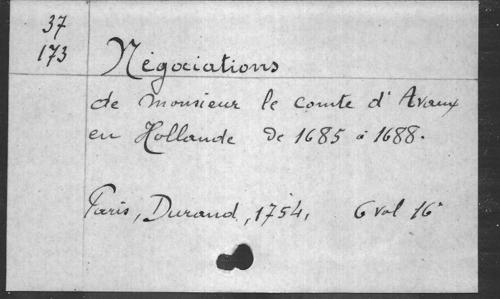 37
173
Négociations
de monsieur le comte d'Avaux
en Hollande de 1685 à 1688.
Paris, Durand, 1754, 6 vol 16°